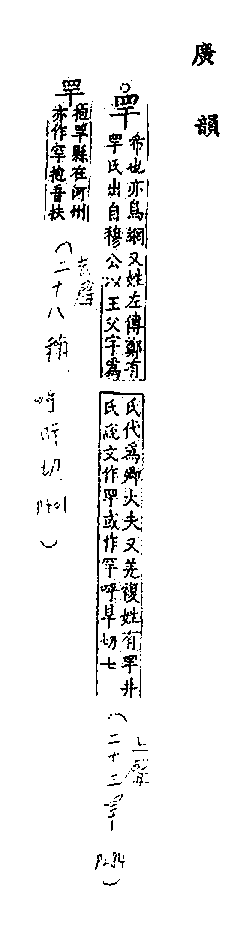 廣韻
罕
希也亦鳥網又姓左傳鄭有
罕氏出自穆公以王父字為
氏代為卿大夫又羌複姓有罕井
氏說文作罕或作罕呼旱切七
(上聲
二十三旱
P284)
罕
枹罕縣在河州
亦作罕枹音扶
(去聲
二十八翰
呼旰切
P401)